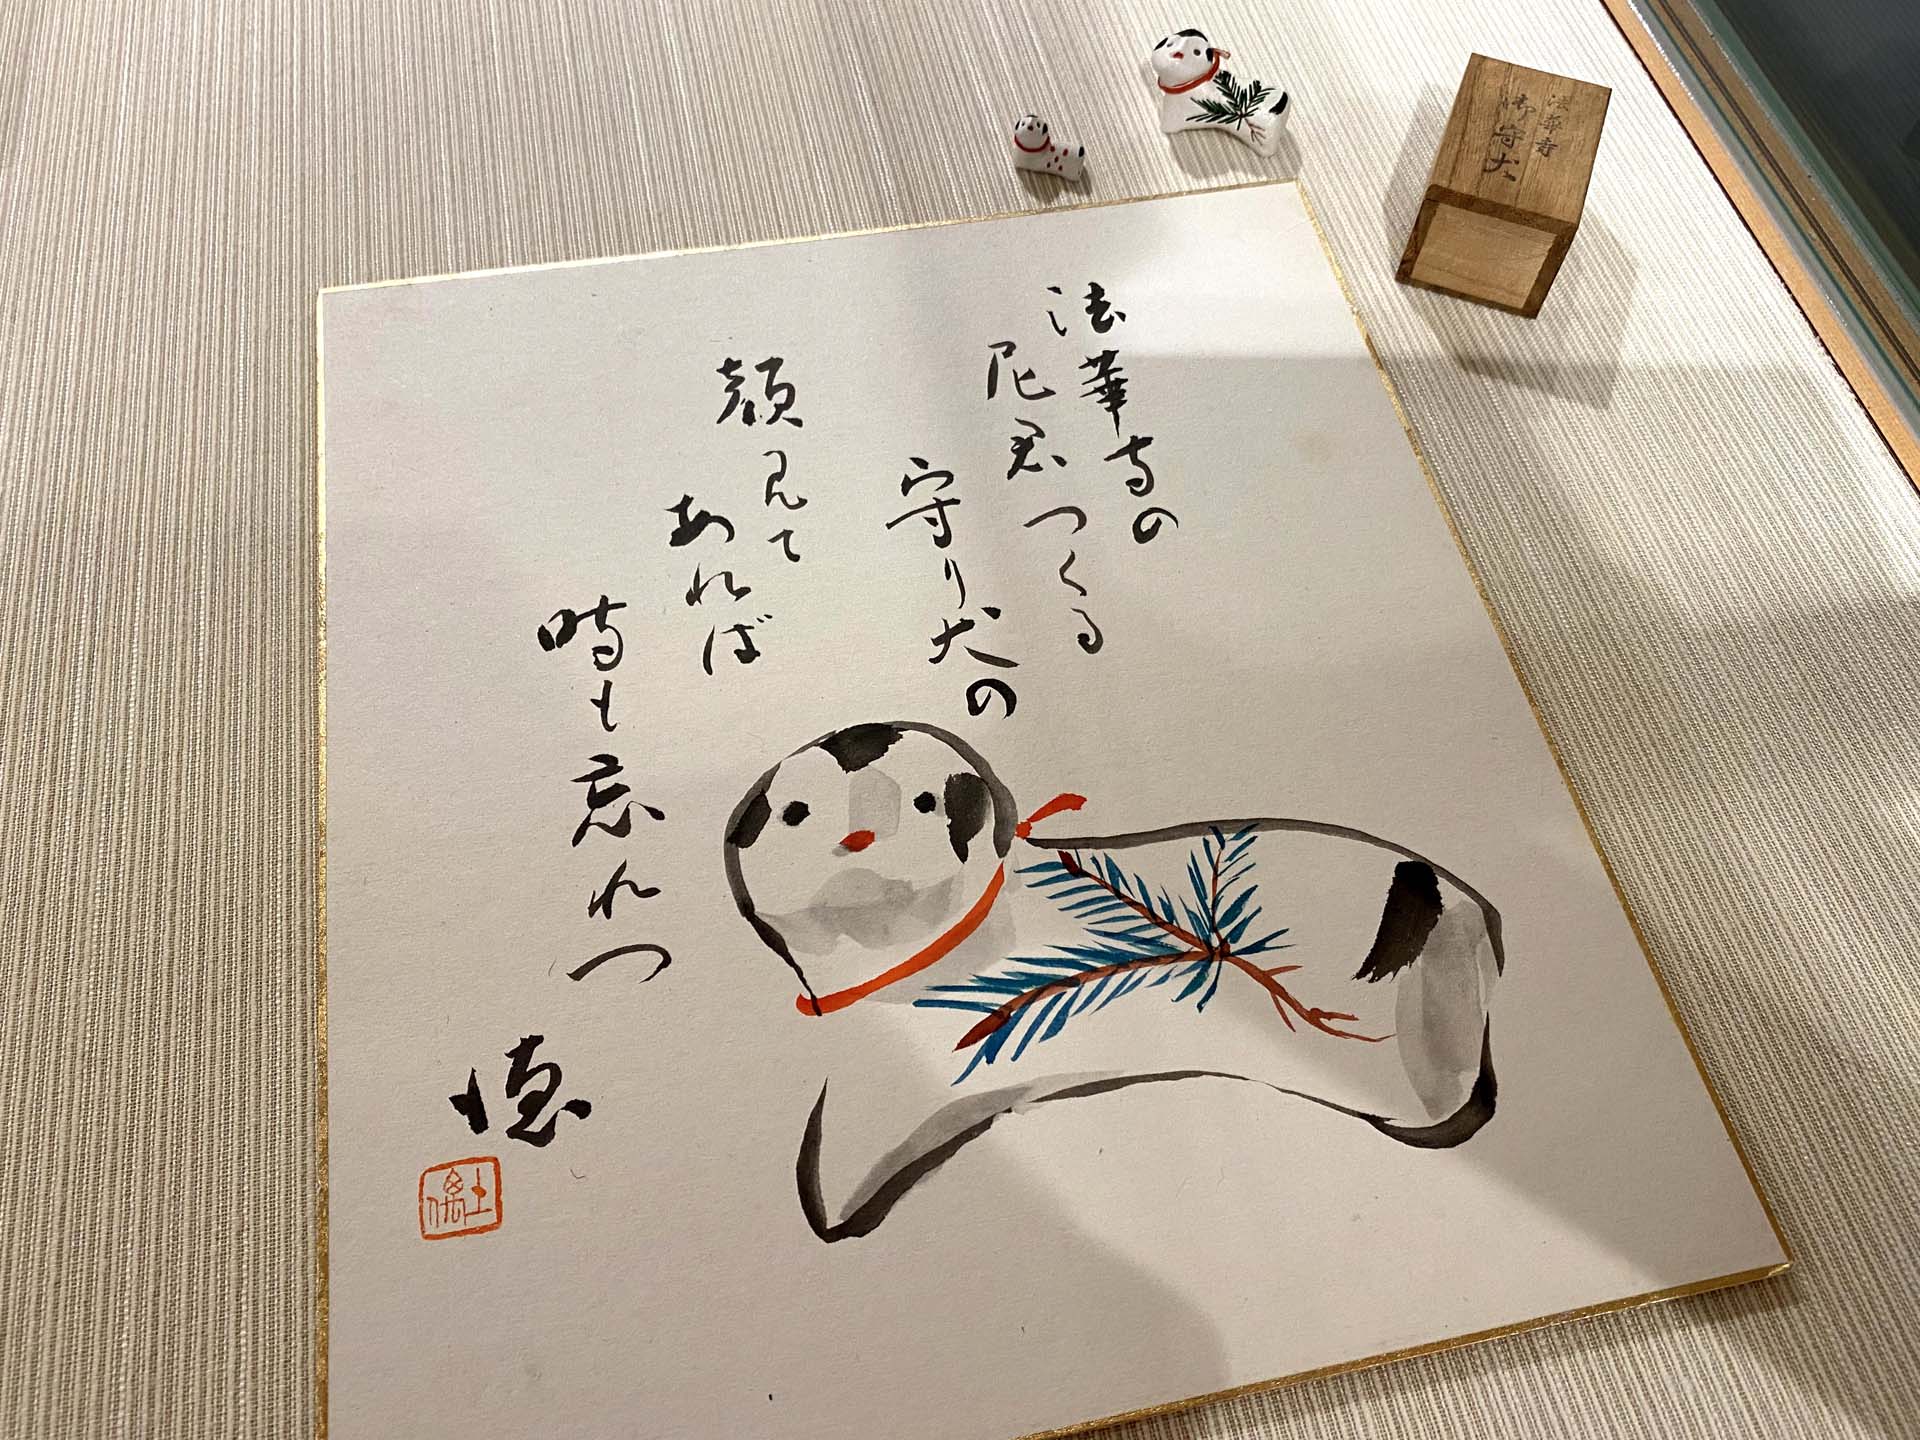 法華寺の
尼君つくる
守り犬の
顔見て
あれば
時も忘れつ
徳
法華寺
御守犬